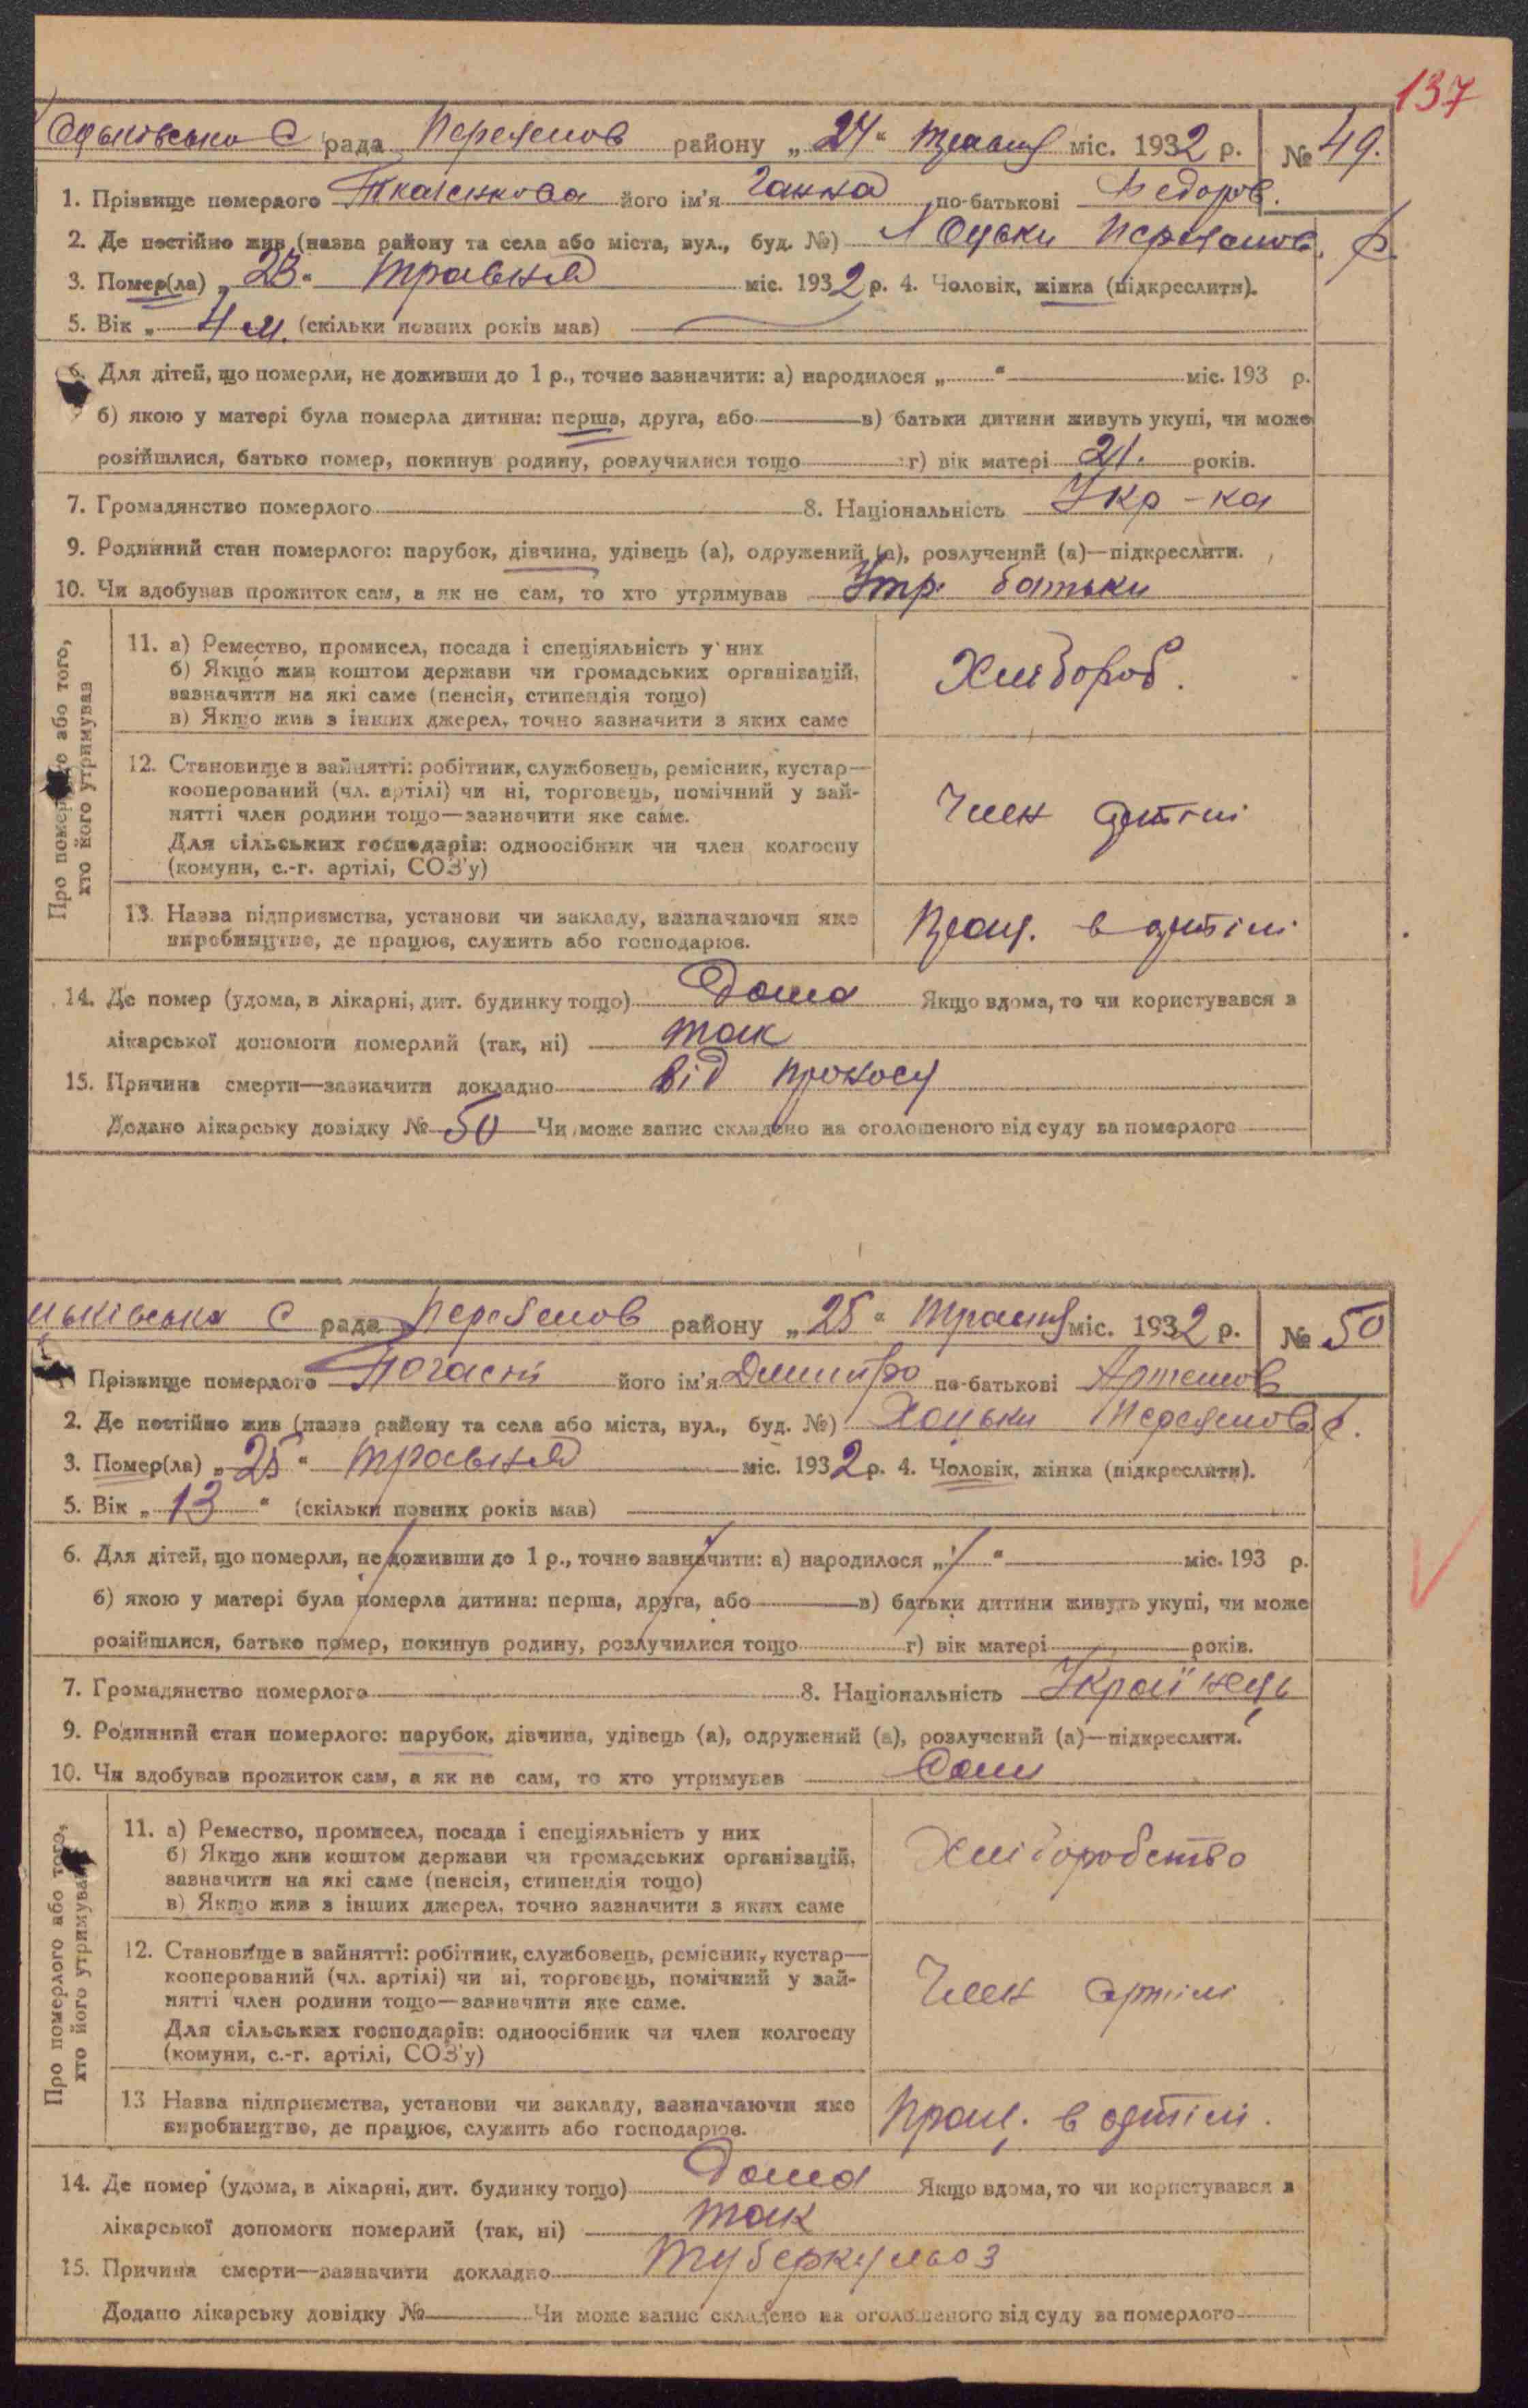 137
рада Переяслов району „24" Травня міс. 1932 р. № 49.
1. Прізвище померлого Ткаченкова його ім'я Ганна по-батькові Федоров.
2. Де постійно жив (назва району та села або міста, вул., буд. №) Хоцьки Переяслов. р.
3. Помер(ла) „23" травня міс. 1932 р. 4. Чоловік, жінка (підкреслити).
5. Вік „ 4 м. (скільки повних років мав)
6. Для дітей, що померли, не доживши до 1 р., точно зазначити: а) народилося „ " міс. 193 р.
б) якою у матері була померла дитина: перша, друга, або в) батьки дитини живуть укупі, чи може
розійшлися, батько помер, покинув родину, розлучилися тощо г) вік матері 21. років.
7. Громадянство померлого 8. Національність Укр-ка
9. Родинний стан померлого: парубок, дівчина, удівець (а), одружений (а), розлучений (а)—підкреслити.
10. Чи здобував прожиток сам, а як не сам, то хто утримував Утр. батьки
Про померлого або того,
хто його утримував
11. а) Ремество, промисел, посада і спеціяльність у них
б) Якщо жив коштом держави чи громадських організацій,
зазначити на які саме (пенсія, стипендія тощо)
в) Якщо жив з інших джерел, точно зазначити з яких саме
Хлібороб.
12. Становище в зайнятті: робітник, службовець, ремісник, кустар—
кооперований (чл. артілі) чи ні, торговець, помічний у зай-
нятті член родини тощо—зазначити яке саме.
Для сільських господарів: одноосібник чи член колгоспу
(комуни, с.-г. артілі, СОЗ'у)
Член артілі
13. Назва підприємства, установи чи закладу, зазначаючи яке
виробництво, де працює, служить або господарює.
Прац. в артілі
14. Де помер (удома, в лікарні, дит. будинку тощо) Дома Якщо вдома, то чи користувався з
лікарської допомоги померлий (так, ні) так
15. Причина смерти—зазначити докладно від проносу
Додано лікарську довідку № 50 Чи може запис складено на оголошеного від суду за померлого
цьківська С рада Переяслов району „25" Травня міс. 1932 р. № 50
1. Прізвище померлого його ім'я Дмитро по-батькові Артемов
2. Де постійно жив (назва району та села або міста, вул., буд. №) Хоцьки Переяслов р.
3. Помер(ла) „25" травня міс. 1932 р. 4. Чоловік, жінка (підкреслити).
5. Вік „ 13 " (скільки повних років мав)
6. Для дітей, що померли, не доживши до 1 р., точно зазначити: а) народилося „ " міс. 193 р.
б) якою у матері була померла дитина: перша, друга, або в) батьки дитини живуть укупі, чи може
розійшлися, батько помер, покинув родину, розлучилися тощо г) вік матері років.
7. Громадянство померлого 8. Національність Українець
9. Родинний стан померлого: парубок, дівчина, удівець (а), одружений (а), розлучений (а)—підкреслити.
10. Чи здобував прожиток сам, а як не сам, то хто утримував Сам
Про померлого або того,
хто його утримував
11. а) Ремество, промисел, посада і спеціяльність у них
б) Якщо жив коштом держави чи громадських організацій,
зазначити на які саме (пенсія, стипендія тощо)
в) Якщо жив з інших джерел, точно зазначити з яких саме
Хліборобство
12. Становище в зайнятті: робітник, службовець, ремісник, кустар—
кооперований (чл. артілі) чи ні, торговець, помічний у зай-
нятті член родини тощо—зазначити яке саме.
Для сільських господарів: одноосібник чи член колгоспу
(комуни, с.-г. артілі, СОЗ'у)
Член артілі
13 Назва підприємства, установи чи закладу, зазначаючи яке
виробництво, де працює, служить або господарює.
Прац. в артілі.
14. Де помер (удома, в лікарні, дит. будинку тощо) Дома Якщо вдома, то чи користувався з
лікарської допомоги померлий (так, ні) так
15. Причина смерти—зазначити докладно туберкульоз
Додано лікарську довідку № Чи може запис складено на оголошеного від суду за померлого